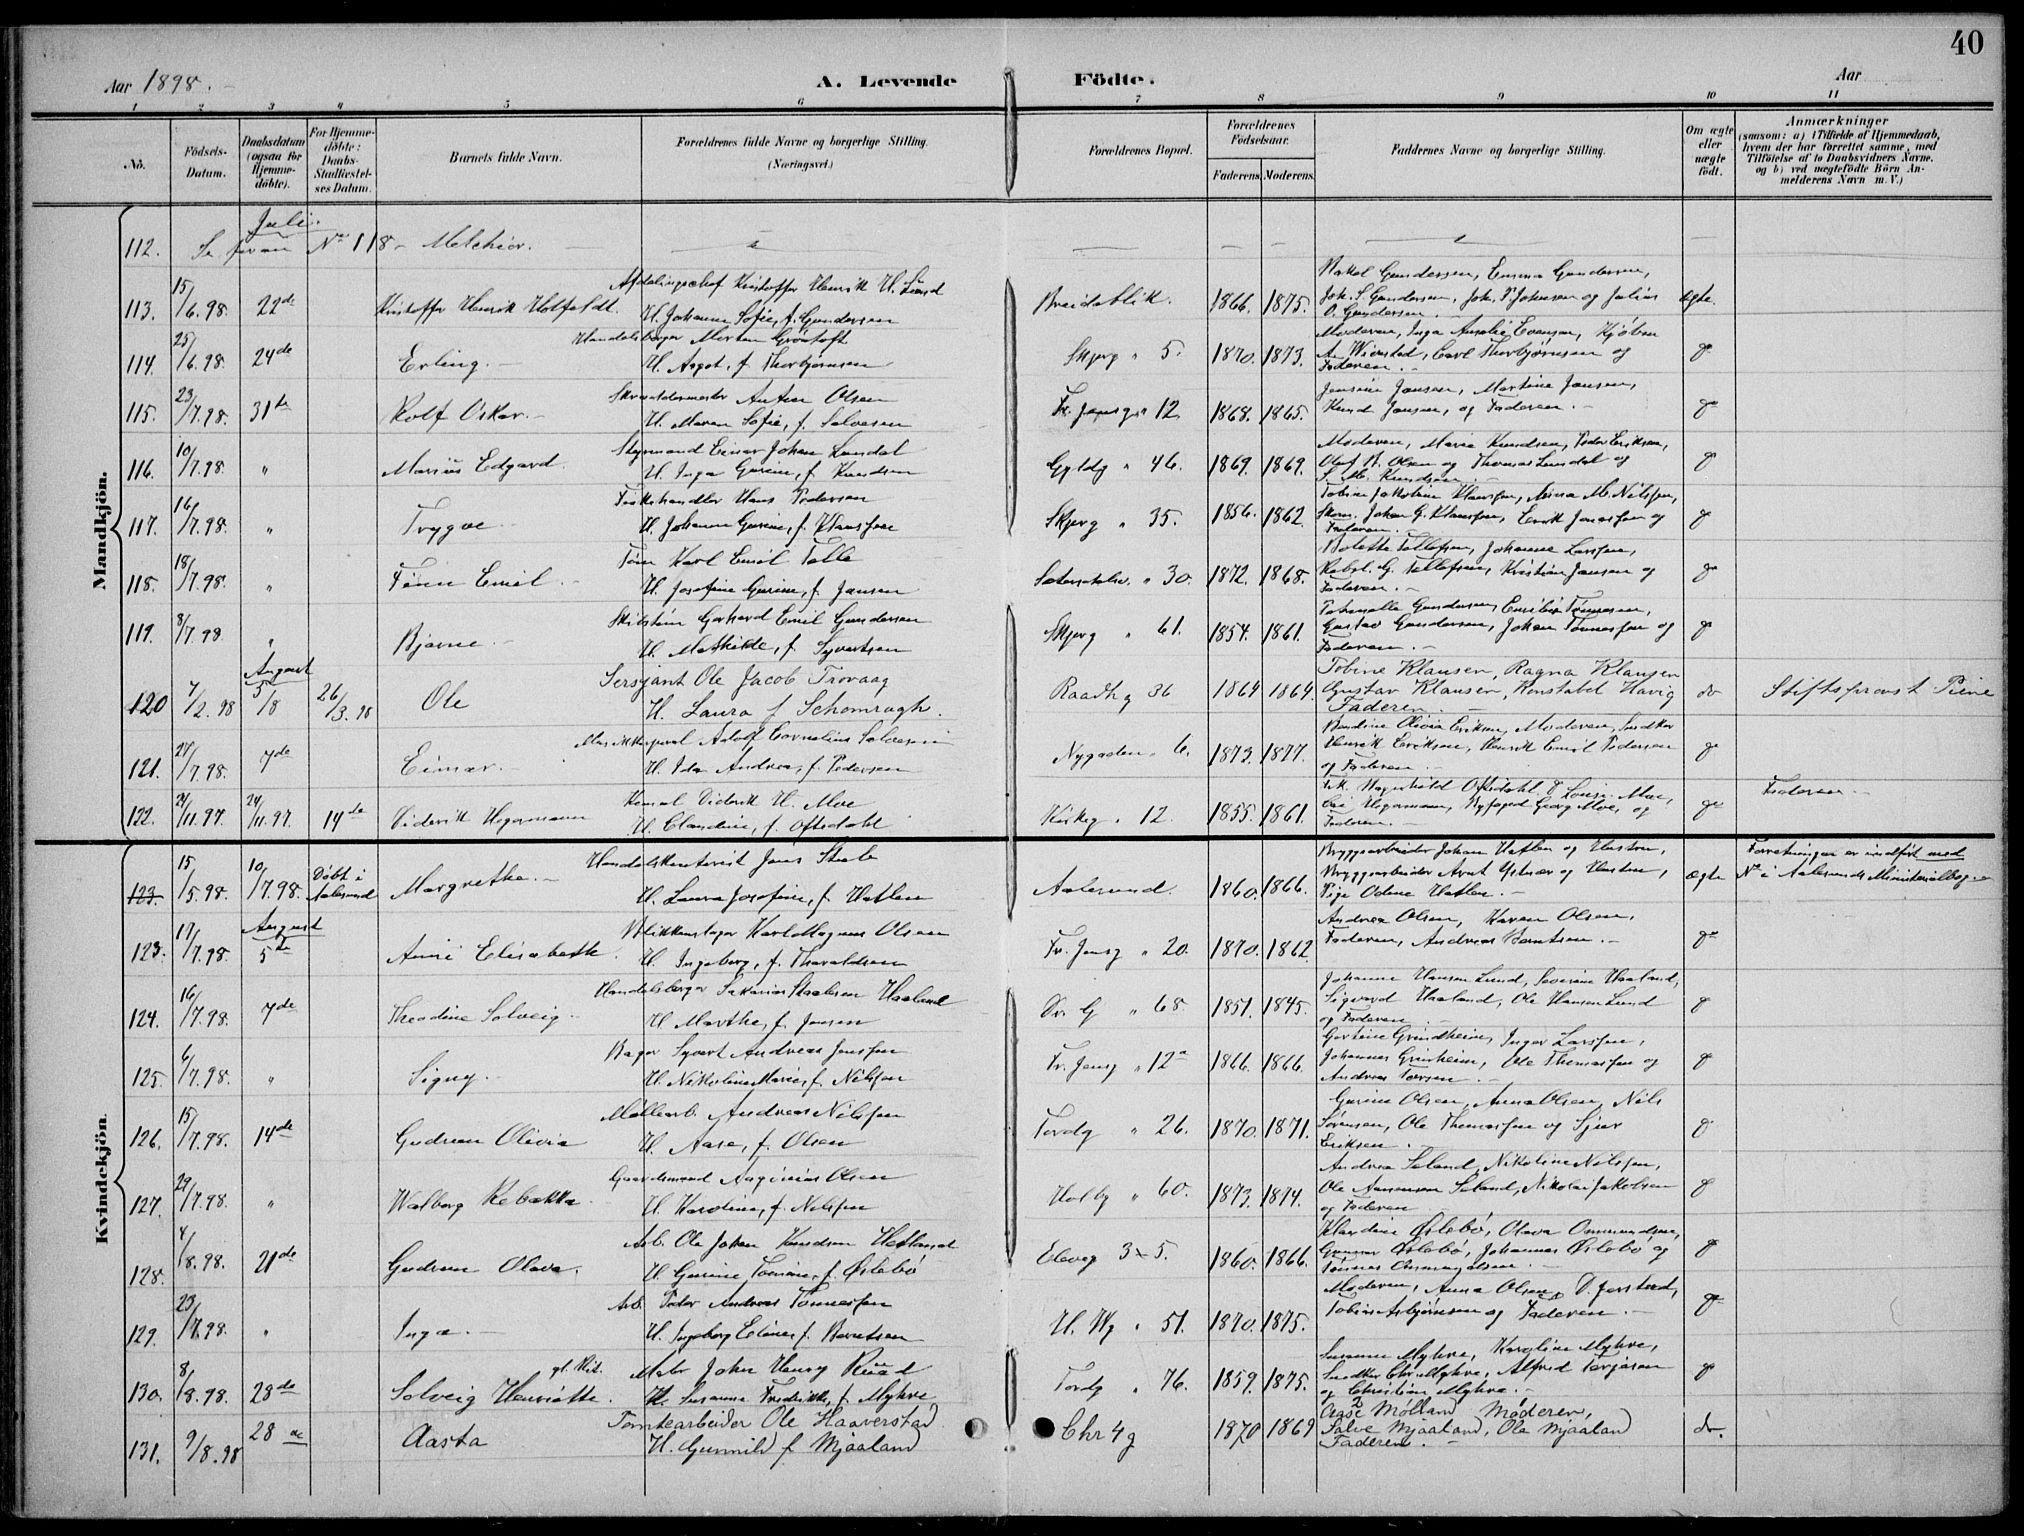 40
Aar 1898.
A. Levende Födte.
Aar
1 2 3 4 5 6 7 8 9 10 11
No.
Födsels-Datum.
Daabsdatum (ogsaa for Hjemme-döbte).
For Hjemme-döbte: Daabs-Stadfæstel-ses Datum.
Barnets fulde Navn.
Forældrenes fulde Navne og borgerlige Stilling. (Næringsvei.)
Forældrenes Bopæl.
Forældrenes Födselsaar.
Faderens. Moderens.
Faddernes Navne og borgerlige Stilling.
Om ægte eller uægte födt.
Anmærkninger
(saasom: a) i Tilfælde af Hjemmedaab, hvem der har forrettet samme, med Tilföielse af to Daabsvidners Navne, og b) ved uægtefödte Börn An-melderens Navn m. V.)
Mandkjön.
Juli.
112. Se foran No 118 - Melchior.
113. 15/6.98. 22de Kristoffer Henrik Holfeldt. Afdelingschef Kristoffer Henrik H. Lund
H. Johanne Sofie, f. Gundersen Breidablik. 1866. 1875. Rakel Gundersen, Emma Gundersen,
Joh. S. Gundersen, Joh. P. Johnsen og Julius
O. Gundersen. ægte.
114. 25/6.98. 24de Erling. Handelsborger Morten Gröstoft
H. Aagot, f. Thorbjørnsen Skjerg " 5. 1870. 1873. Moderen, Inga Amalie Evensen, Kjøbm
Carl Thorbjørnsen og
Faderen.
115. 23/7.98. 31te Rolf Oskar. Skræddermester Anton Olsen
H. Maren Sofie, f. Salvesen Fr. Jensg " 12 1868. 1865. Jensine Jansen, Martine Jansen,
Knud Jansen, og Faderen.
116. 10/7.98. " Marius Edgard. Styrmand Einar Johan Lundal
H. Inga Gurine, f. Knudsen Gyldg " 46. 1869. 1869. Moderen, Marie Knudsen, Peder Eriksen,
Oluf B. Olsen og Thomas Lundal og
S. M. Knudsen.
117. 16/7.98. " Trygve. Fiskehandler Hans Pedersen
H. Johanne Gurine, f. Klausen Skjerg " 35. 1856. 1862. Tobine Jakobine Klausen, Anna M. Nilssen,
Johan G. Klausen, Enok Jonassen og
Faderen.
118. 18/7.98. " Finn Emil. Tøm Karl Emil Tolle
H. Josefine Gurine, f. Jansen Setersdalsv. " 30. 1872. 1868. Bolette Tollefsen, Johanne Larssen,
G. Tollefsen, Kristian Jansen og
Faderen.
119. 8/7.98. " Bjarne. Gerhard Emil Gundersen
H. Mathilde, f. Syvertsen Skjerg " 61. 1854. 1861. Gundersen, Tønnesen,
Gustav Gundersen, Johan Tønnessen og
Faderen.
August
120 7/2.98 5/8 26/3.98 Ole Sersjant Ole Jacob Trovaag
H. Laura f Schomragh. Raadhg 36 1864 1864. Tobine Klausen, Ragna Klausen
Gustav Klausen, Konstabel Havig
Faderen. do Stiftsprovst
121. 27/7.98. 7de Einar. Musikkorporal Adolf Cornelius Salvesen
H. Ida Andrea, f. Pedersen Nygaden. 6. 1873. 1877. Bendine Olivia Eriksen, Moderen, Snedker
Henrik Eriksen, Henrik Emil Pedersen
og Faderen.
122. 24/11.97. 24/11.97. 14de Diderik Hegermann Konsul Diderik H. Moe
H. Claudine, f. Oftedahl Kirkeg " 12. 1855. 1861. Oftedahl & Louise Moe,
Hegermann, Byfoged Georg Moe, og
Faderen. Faderen.
Kvindekjön.
123. 15/5.98. 10/7.98. Døbt i Aalesund Margrethe. Handelskontorist Jens Staib
H. Laura Josefine, f. Hatlen Aalesund. 1860. 1866. Bryggearbeider Johan Hatlen og Hustru,
Bryggearbeider Arnt Ystnæs og Hustru,
Pige Odine Hatlen. ægte Forretningen er indført med
No i Aalesunds Ministerialbog.
August
123. 17/7.98. 5te Anni Elisabeth. Karl Magnus Olsen
H. Ingeborg, f. Thoraldsen Fr. Jensg " 20. 1870. 1862. Andrea Olsen, Karen Olsen,
Faderen, Andreas Berntsen.
124. 16/7.98. 7de Theodine Solveig. Handelsborger Sakarias Staalesen Haaland
H. Marthe, f. Jensen Dr. G " 68. 1851. 1845. Johanne Hansen Lund, Severine Haaland,
Sigvard Haaland, Ole Hansen Lund
og Faderen.
125. 6/7.98. " Signy. Bager Syvert Andreas Jenssen
H. Nikoline Marie, f. Nilssen Fr. Jensg " 12a 1866. 1866. Gertine Grindheim, Inger Larssen,
Johannes Grindheim, Ole Thomassen og
Andreas Larsen.
126. 15/7.98. 14de Gudrun Olivia Møllearb. Andreas Nilssen
H. Aase, f. Olsen Tordg " 26. 1870. 1871. Gurine Olsen, Anna Olsen, Nils
Sørensen, Ole Thomassen og Sjur
Eriksen.
127. 29/7.98. " Walborg Rebekka. Gaardsmand Olsen
H. Karoline, f. Nilssen Holbg " 60. 1873. 1874. Andrea Seland, Nikoline Nilssen,
Ole Aanensen Seland, Nikolai Jakobsen
og Faderen
128. 4/8.98. 21de Gudrun Olava. Arb. Ole Johan Knudsen Hetland
H. Gurine Tomine, f. Øslebø Elveg 3-5. 1860. 1866. Klardine Øslebø, Olava Ommundsen,
Gunnar Øslebø, Johannes Øslebø og
Tønnes Ommundsen.
129. 23/7.98. " Inga. Arb. Peder Andreas Tønnessen
H. Ingeborg Elene, f. Berntsen H. Wg " 51. 1870. 1875. Moderen, Anna Olsen, D. Jerstad,
Tobias Asbjørnsen og Faderen.
130. 8/8.98. 28de Solveig Henriette. Maler John Henry Ruud
H. Susanne Fredrikke, f. Myhre Tordg " 76. 1859. 1875. Susanne Myhre, Karoline Myhre,
Snedker Chr. Myhre, Alfred Terjesen
og Christian Myhre.
131. 9/8.98 28de Aasta Tomtearbeider Ole Haaverstad
H. Gunnild f Mjaaland Chr 4 g 1870 1869 Aase Mølland Moderen,
Salve Mjaaland, Ole Mjaaland
Faderen. do.